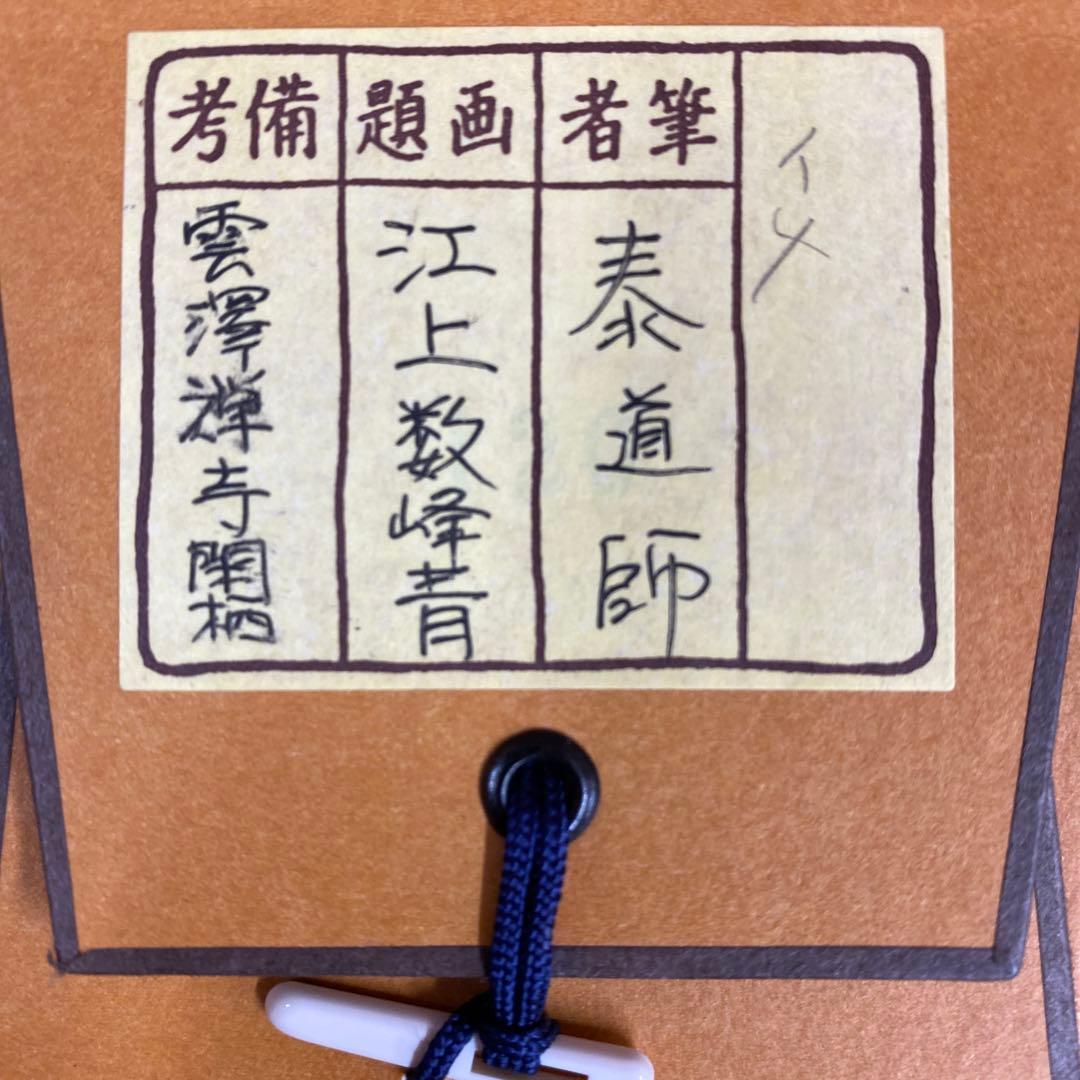 イメ
筆者
泰道師
画題
江上数峰青
備考
雲澤禅寺閑栖